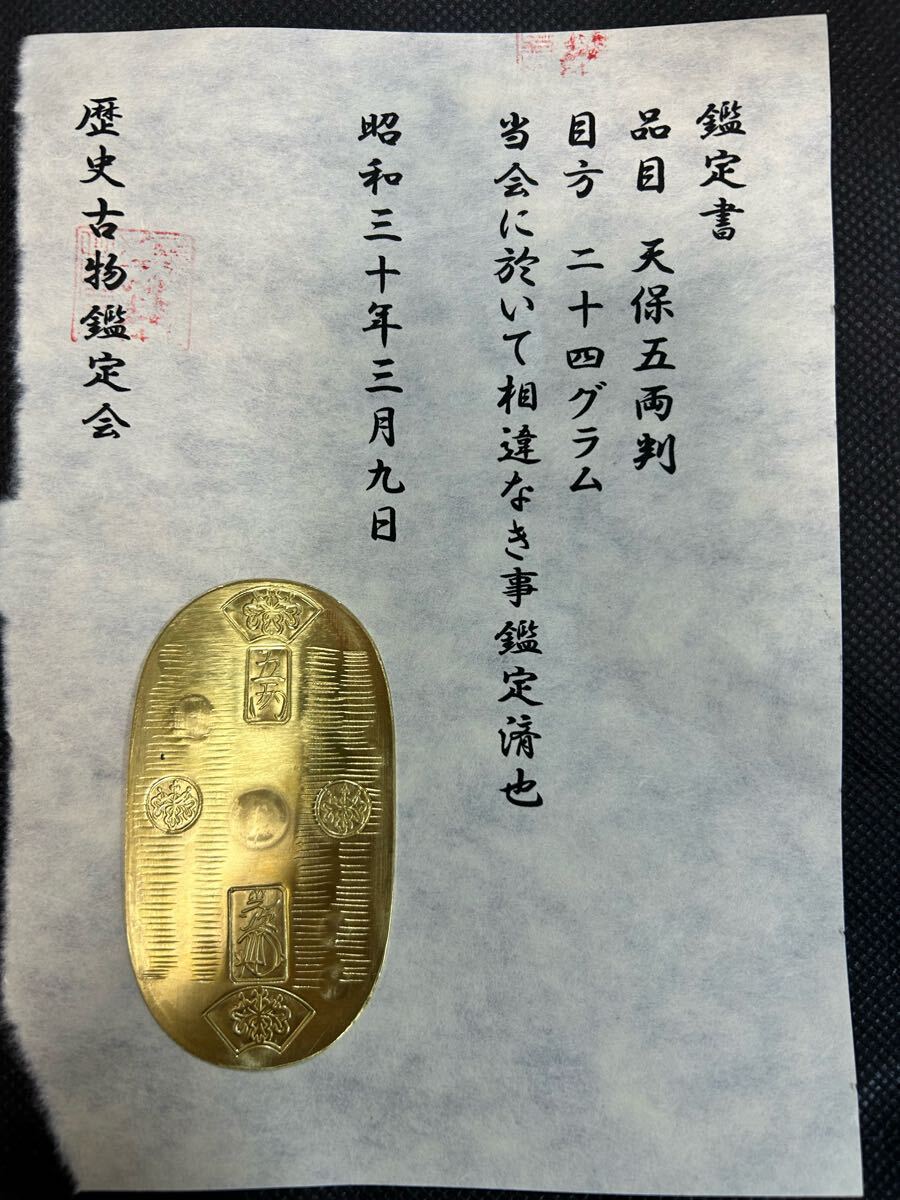 鑑定書
品目 天保五両判
目方 二十四グラム
当会に於いて相違なき事鑑定済也
昭和三十年三月九日
歴史古物鑑定会
五両